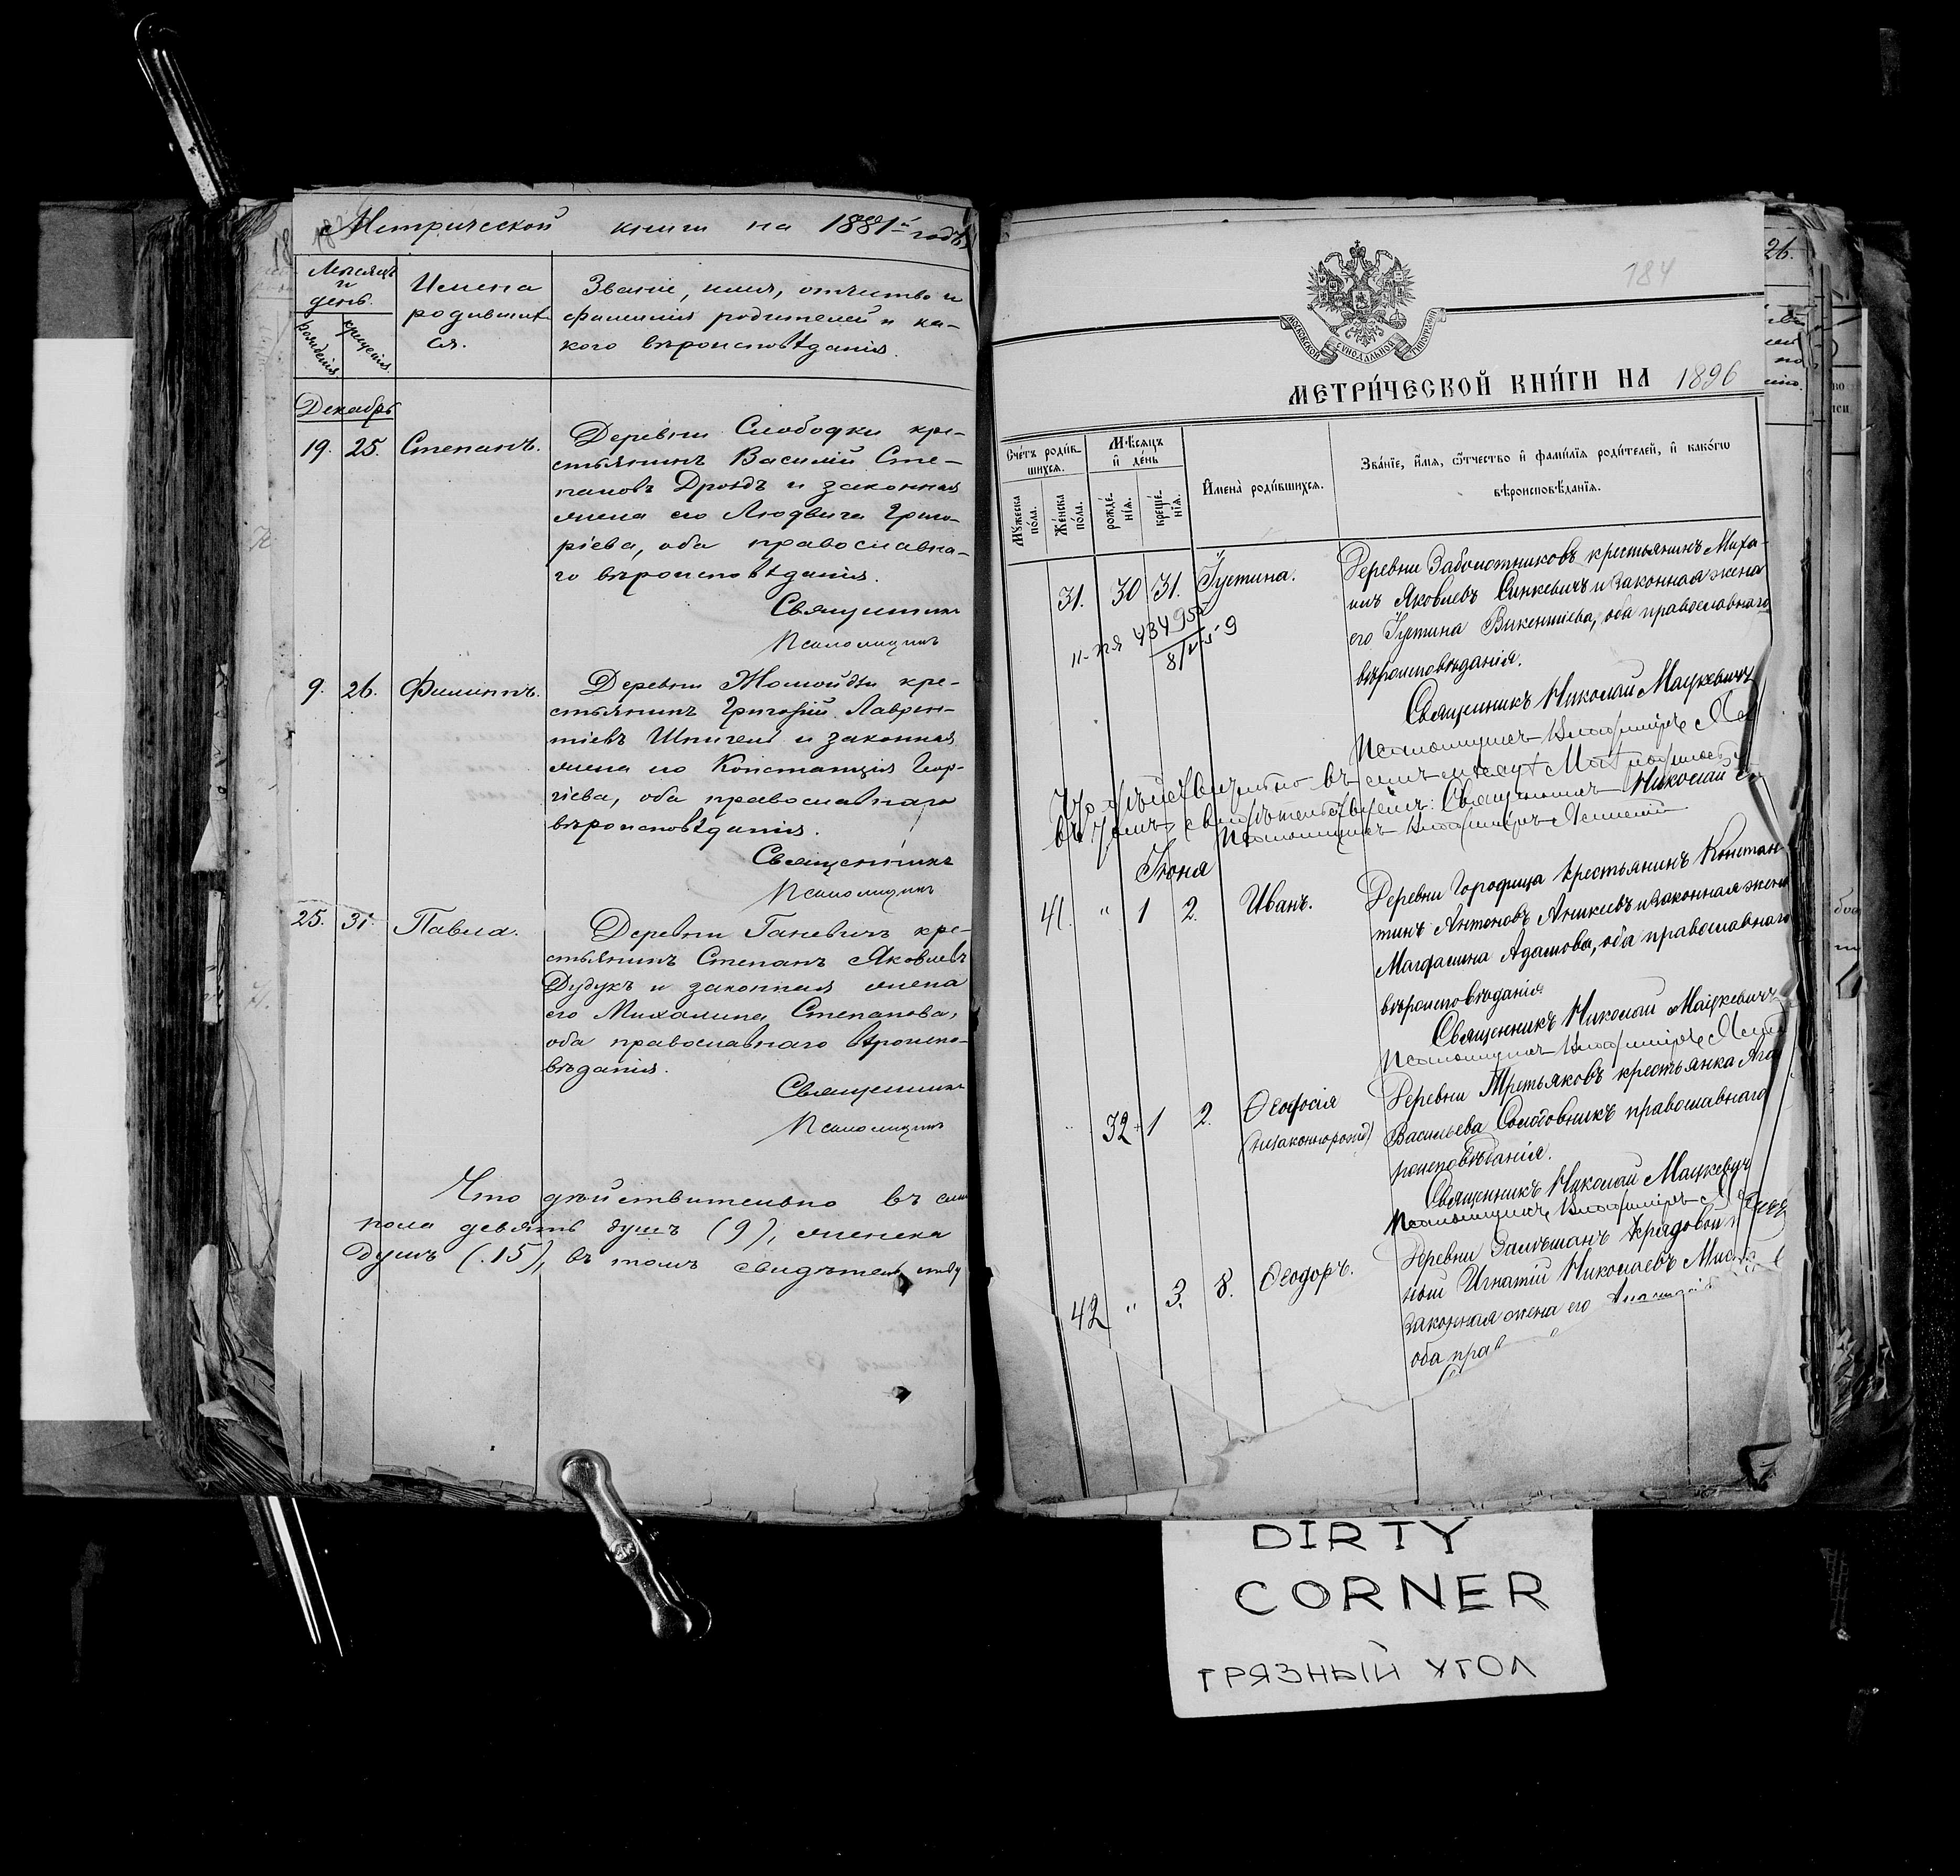 Метрической книги на 1881й годъ
Мѣсяцъ
и
день.
рожденія.
крещенія.
Имена
родивших
ся.
Званіе, имя, отчество и
фамилія родителей и ка-
кого вѣроисповѣданія.
Декабрь
19. 25. Степанъ.
Деревни Слободки кре-
стьянинъ Василій Сте-
пановъ Дроздъ и законная
жена его Людвига Григо-
ріева, оба православна-
го вѣроисповѣданія.
Священник
Псаломщикъ
9. 26. Филиппъ.
Деревни Жомойди кре-
стьянинъ Григорій Лаврен-
тіевъ Шпигель и законная
жена его Констанція Геор-
гіева, оба православнаго
вѣроисповѣданія.
Священникъ
Псаломщикъ
25. 31. Павла.
Деревни Ганевичъ кре-
стьянинъ Степанъ Яковлевъ
Дудукъ и законная жена
его Михалина Степанова,
оба православнаго вѣроиспо-
вѣданія.
Священник
Псаломщикъ
Что дѣйствительно въ сем
пола девять душъ (9), женска
душъ (15), въ томъ свидѣтельству
184
МОСКОВСКОЙ СУНОДАЛЬНОЙ ТИПОГРАФІИ
МЕТРИ́ЧЕСКОЙ КНИ́ГИ НА 1896
Сче́тъ роди́в-
шихся.
Мѣ́сяцъ
и҆ де́нь
Мꙋ́жеска
по́ла.
Же́нска
по́ла.
рожде́-
нїѧ.
креще́-
нїѧ.
И҆мена̀ роди́вшихся.
Зва́нїе, и҆́мя, ѻ҆́тчество и҆ фами́лїя роди́телей, и҆ како́гѡ
вѣроисповѣ́данїя.
31. 30 31. Іустина.
Деревни Заболотниковъ крестьянинъ Миха-
илъ Яковлевъ Синкевичъ и законная жена
его Іустина Викентіева, оба православнаго
вѣроисповѣданія.
Священникъ Николай Мацкевичъ
Псаломщикъ Владиміръ
Что дѣйствительно въ
въ томъ свидѣтельствуемъ: Священникъ Николай
Псаломщикъ Владиміръ
Іюня
41. " 1 2. Иванъ.
Деревни Городища крестьянинъ Констан-
тинъ Антоновъ Аникѣевъ и законная жена
Магдалина Адамова, оба православнаго
вѣроисповѣданія
Священникъ Николай Мацкевичъ
Псаломщикъ Владиміръ
32 1 2. Ѳеодосія
(незаконнорожд)
Деревни Третьяковъ крестьянка Ага
Васильева Солодовникъ православнаго
роисповѣданія.
Священникъ Николай Мацкевичъ
Псаломщикъ Владиміръ
42 " 3. 8. Ѳеодоръ.
Деревни рядовой
Игнатій Николаевъ
законная жена его
оба прав
26.
DIRTY
CORNER
ГРЯЗНЫЙ УГОЛ